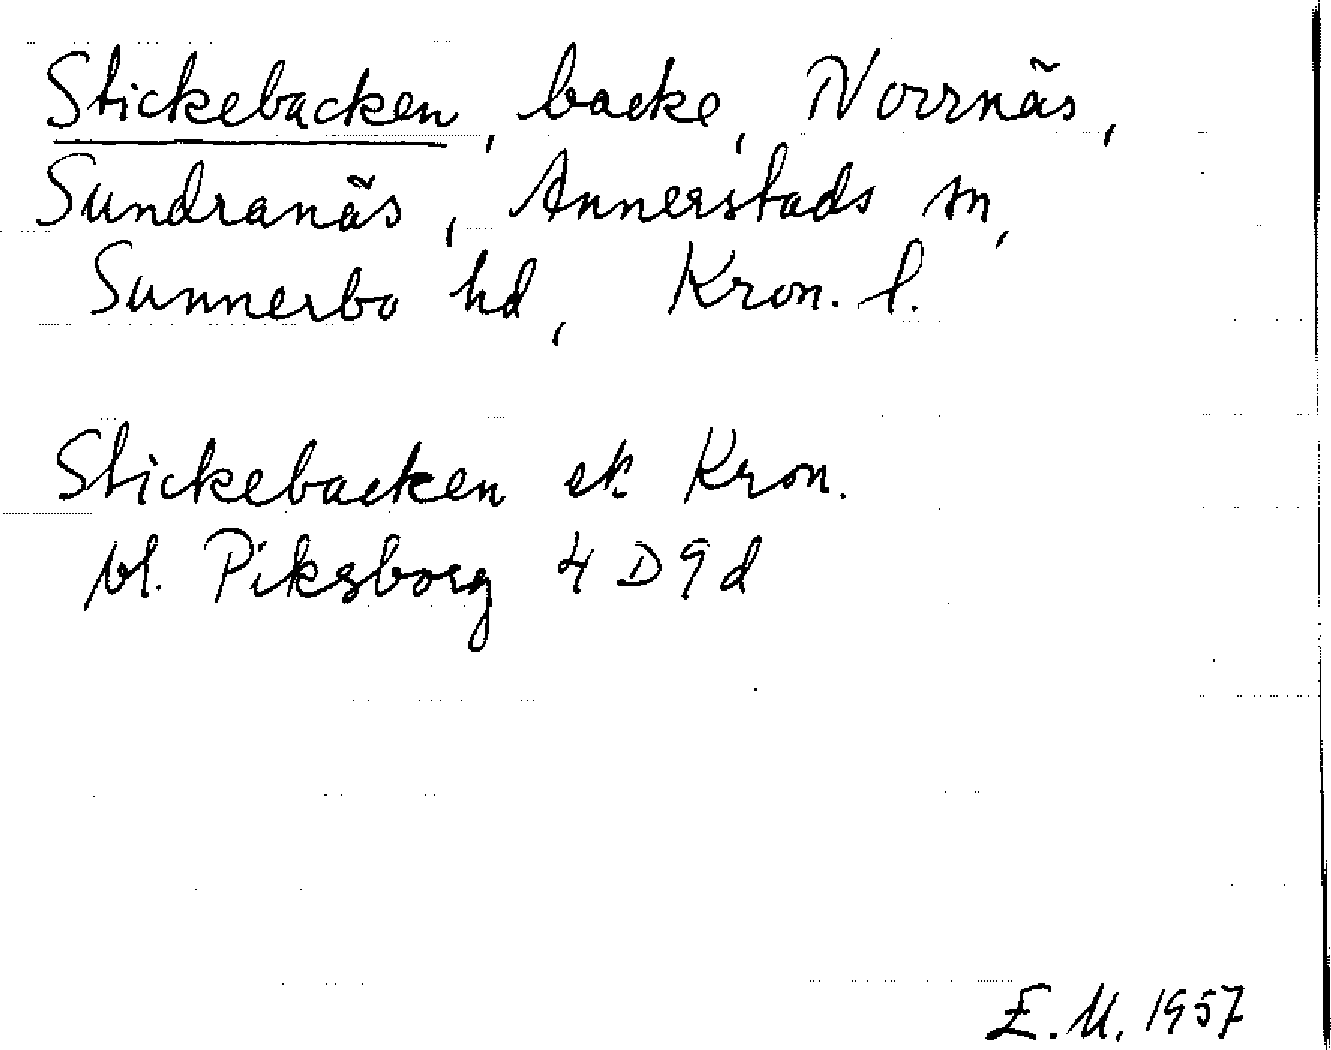 Stickebacken, backe, Norrnäs,
Sundranäs, Annerstads sn,
Sunnerbo hd, Kron. l.
Stickebacken ek Kron.
bl. Piksborg 4 D 9 d
E. M. 1957